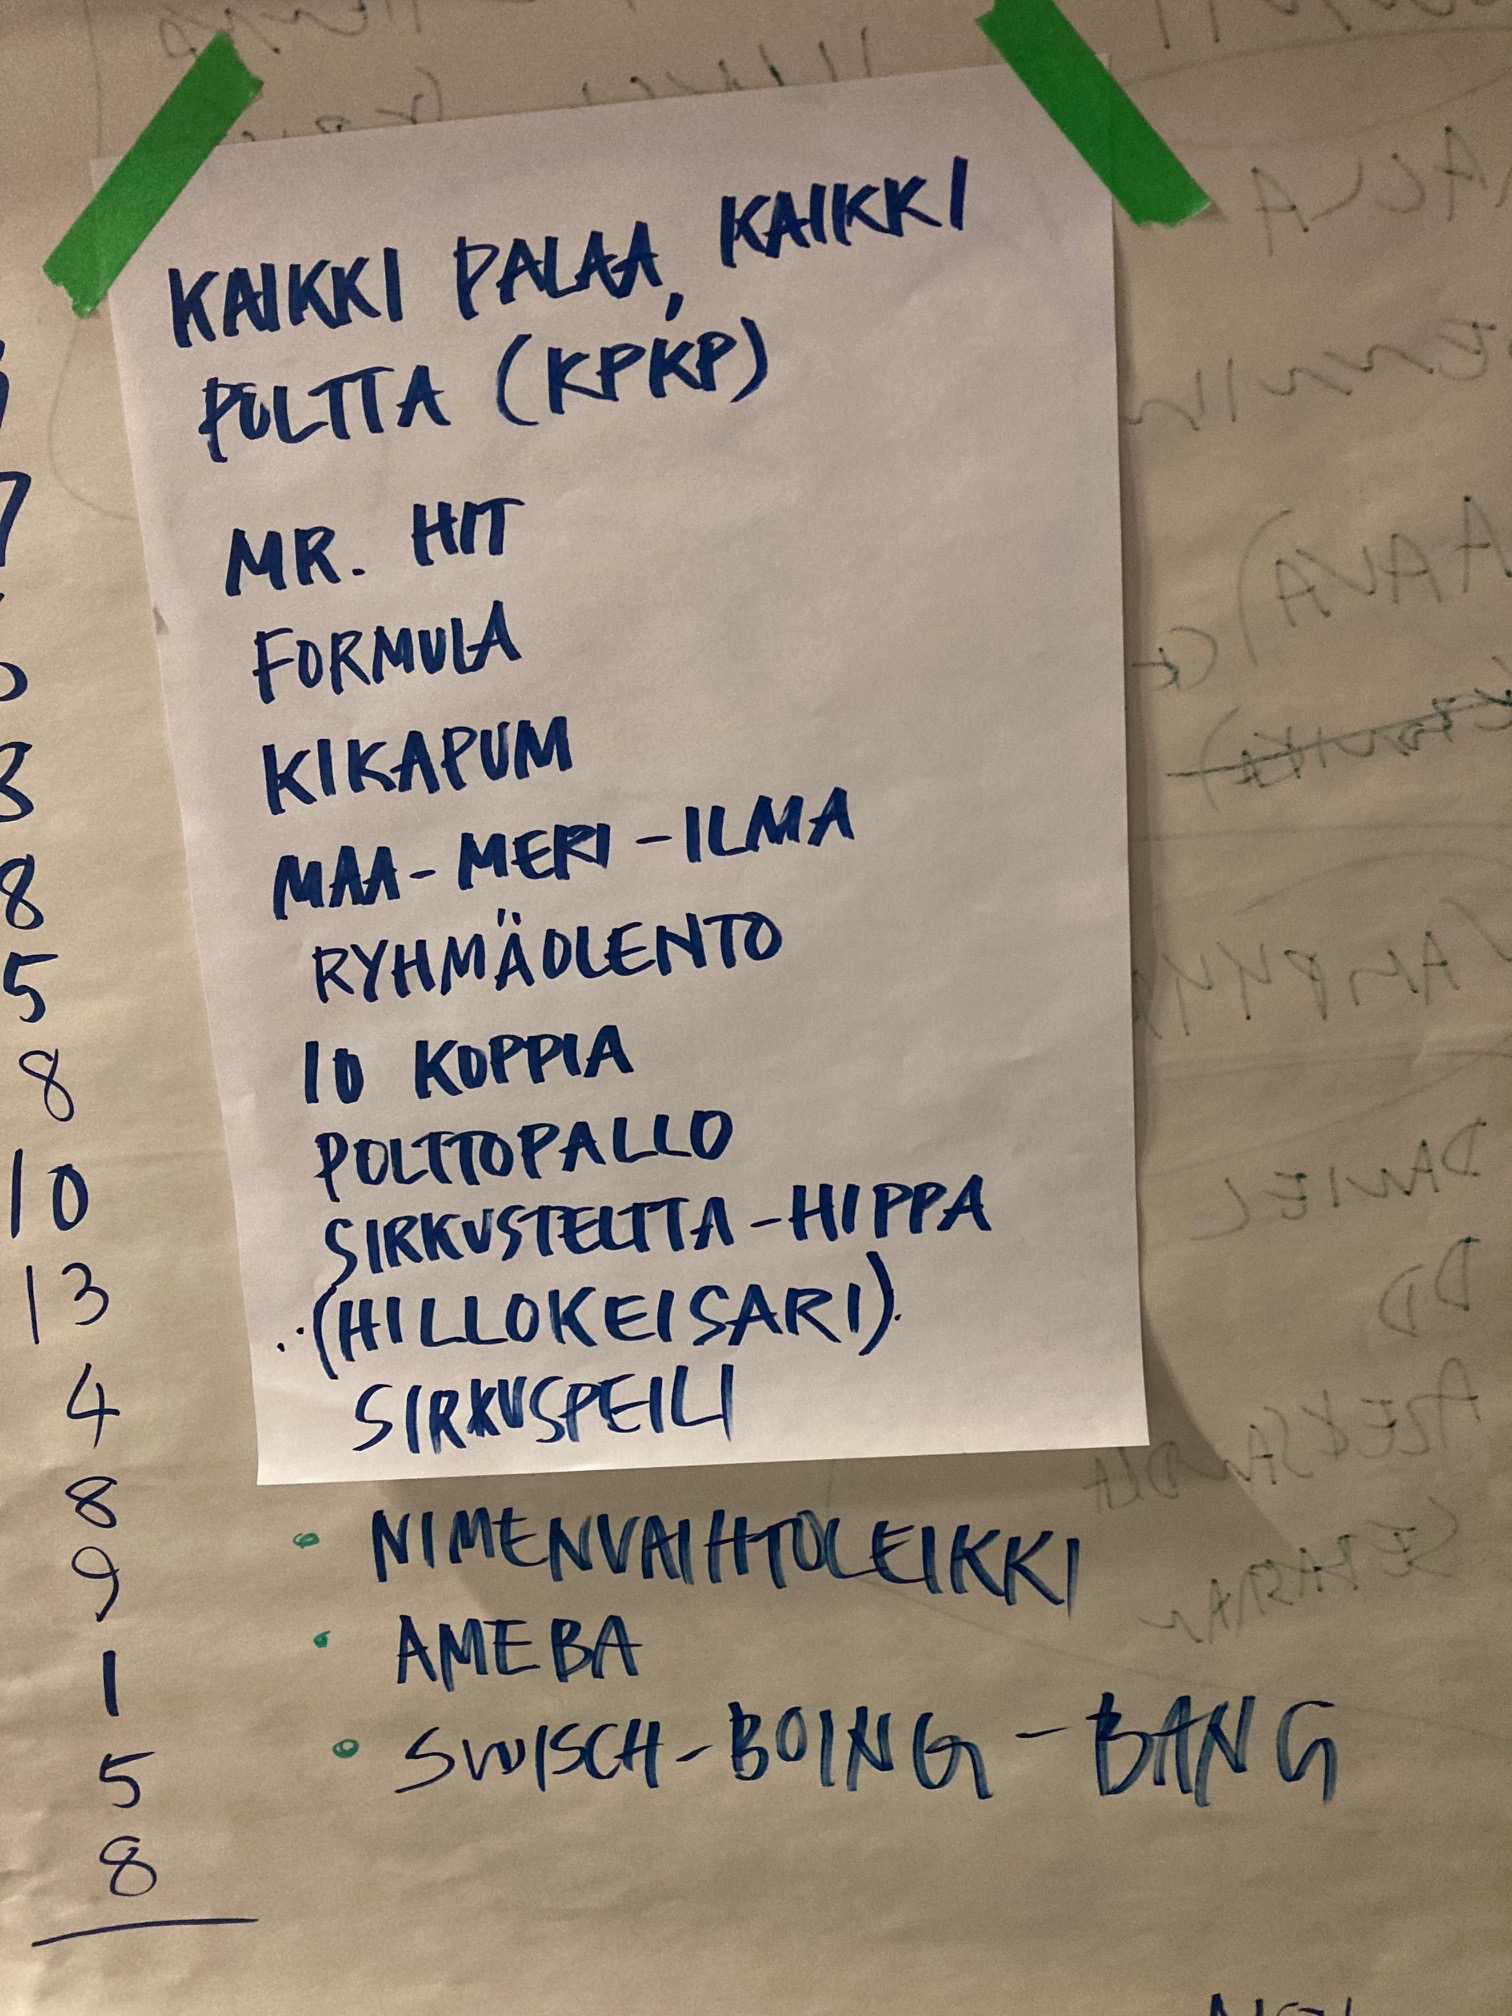 KAIKKI PALAA, KAIKKI
POLTTA (KPKP)
MR. HIT
FORMULA
KIKAPUM
MAA-MERI-ILMA
RYHMÄOLENTO
10 KOPPIA
POLTTOPALLO
SIRKUSTELTTA-HIPPA
(HILLOKEISARI)
SIRKUSPEILI
• NIMENVAIHTOLEIKKI
• AMEBA
• SWISCH-BOING-BANG
7
3
8
5
8
10
13
4
8
9
1
5
8
DANIEL
DD
ALEKSANDRA